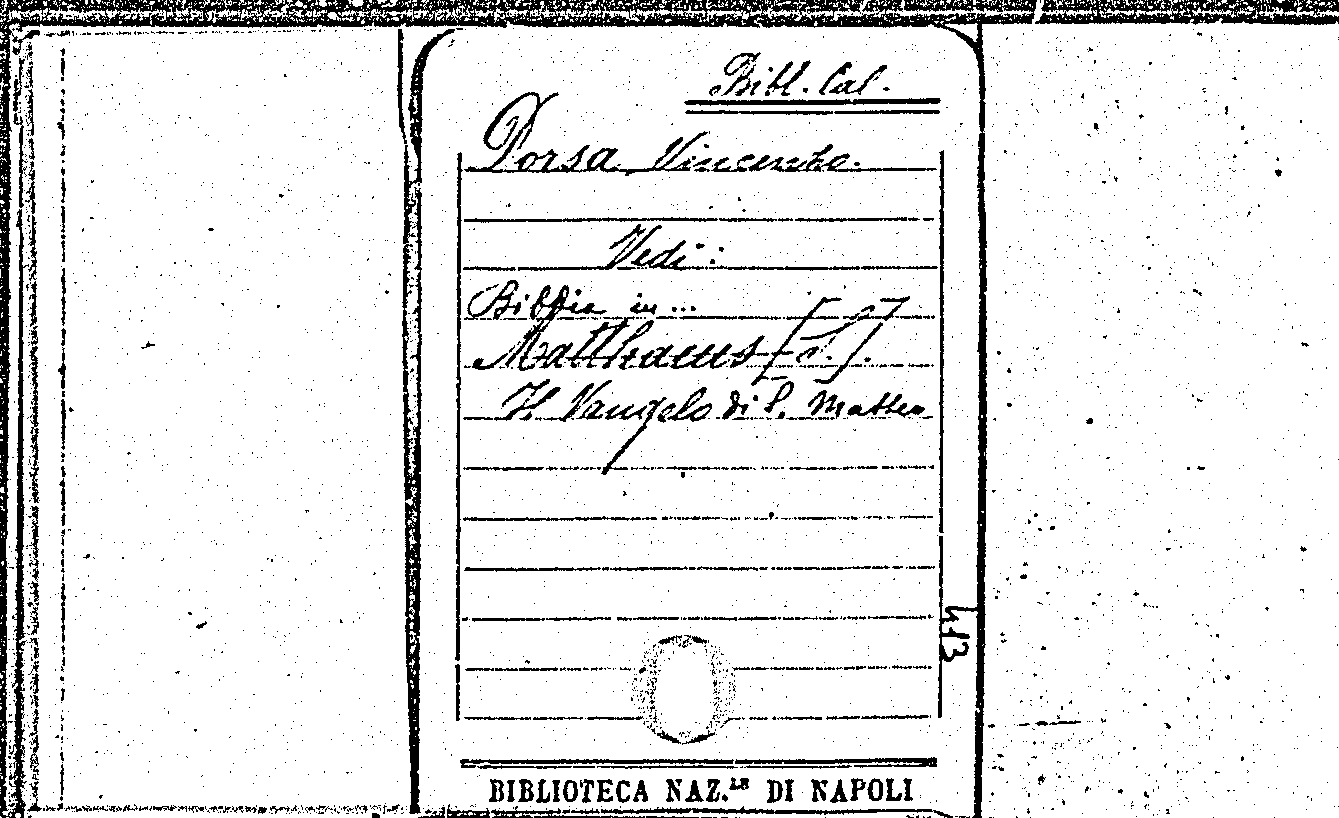 Bibl. Cal.
Dorsa Vincenzo.
Vedi:
Bibbia in...
Matthaeus [S.].
Il Vangelo di S. Matteo
413
BIBLIOTECA NAZ.LE DI NAPOLI